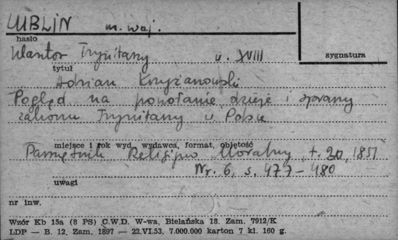 LUBLIN m. woj.
hasło
Klasztor Trynitarzy w. XVIII
sygnatura
tytuł
Adrian Krzyżanowski
Pogląd na powołanie dzieje i sprawy
zakonu Trynitarzy w Polsce
miejsce i rok wyd., wydawca, format, objętość
Pamiętnik Religijno Moralny, t. 20, 1851
Nr. 6, s. 477-480
uwagi
nr inw.
Wzór Kb 15a (8 PS) C.W.D. W-wa, Bielańska 18. Zam. 7912/K
LDP — B. 12, Zam. 1897 — 22.VI.53. 7.000.000 karton 7 kl. 160 g.